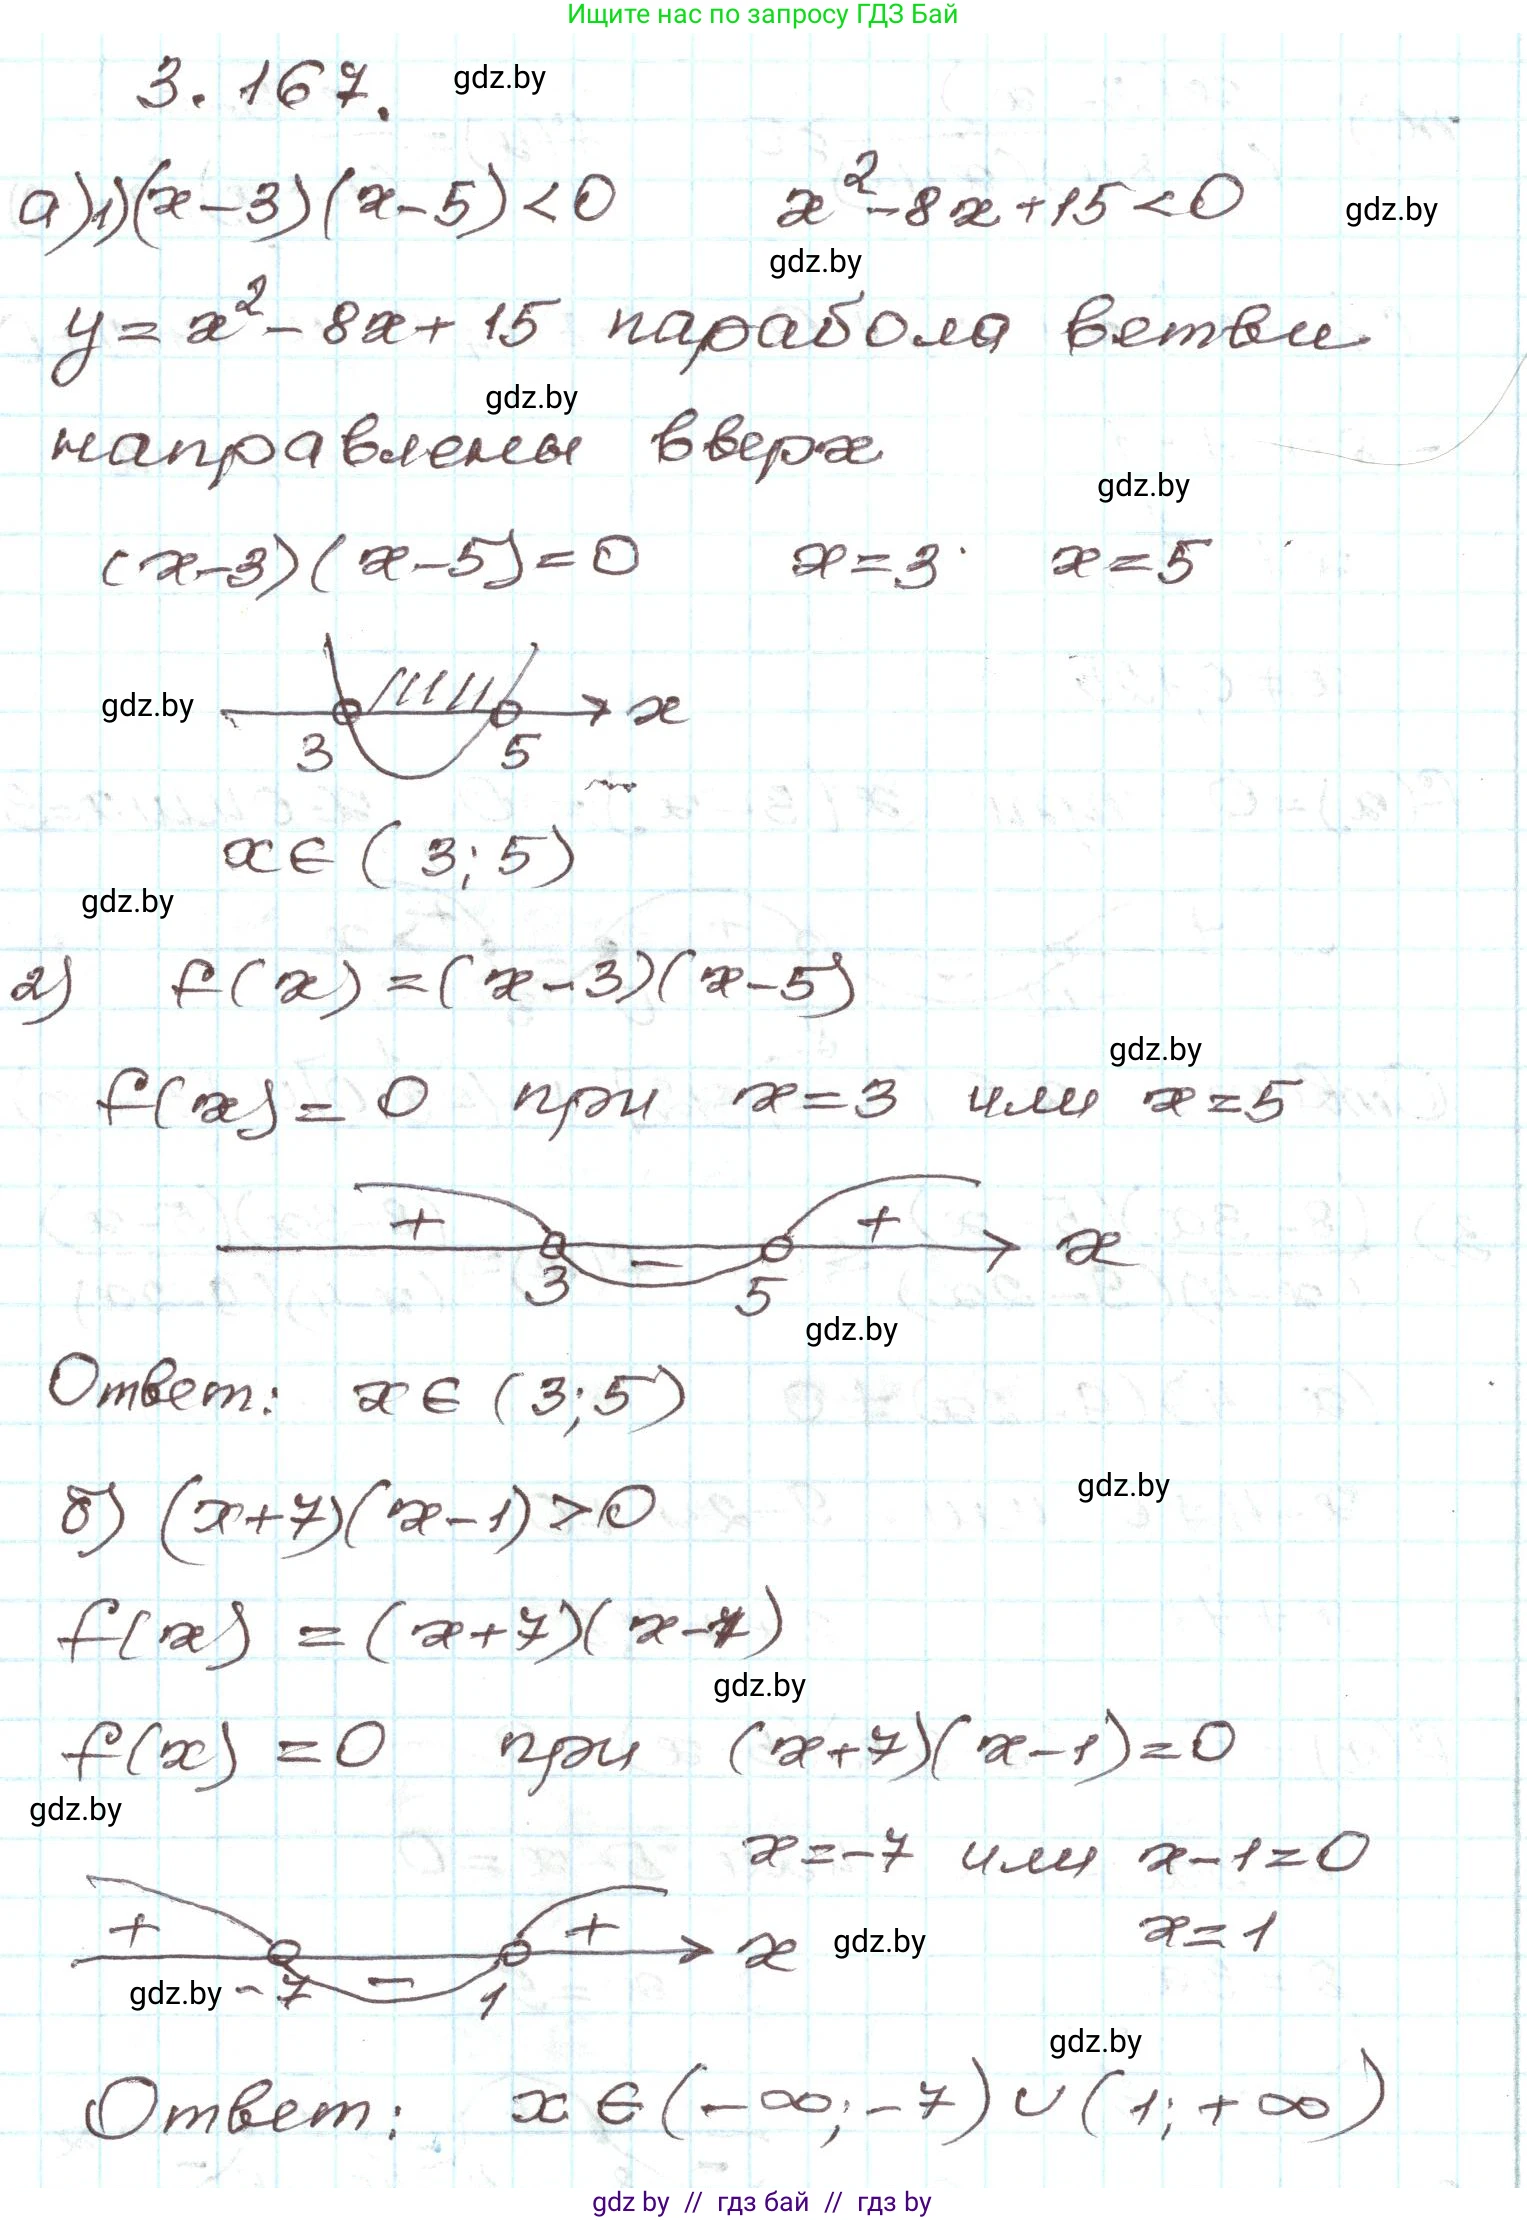 Ищите нас по запросу ГДЗ Бай
3.167. gdz.by
а)1)(x-3)(x-5)<0 x²-8x+15<0 gdz.by
gdz.by
y=x²-8x+15 парабола ветви
gdz.by
направлены вверх
gdz.by
(x-3)(x-5)=0 x=3 x=5
gdz.by x
3 5
x∈(3;5)
gdz.by
2) f(x)=(x-3)(x-5)
gdz.by
f(x)=0 при x=3 или x=5
+ - + x
3 5
gdz.by
Ответ: x∈(3;5)
gdz.by
б) (x+7)(x-1)>0
f(x)=(x+7)(x-1)
gdz.by
f(x)=0 при (x+7)(x-1)=0
gdz.by
x=-7 или x-1=0
+ - + x gdz.by x=1
gdz.by -7 1
gdz.by
Ответ: x∈(-∞;-7)∪(1;+∞)
gdz by // гдз бай // гдз by